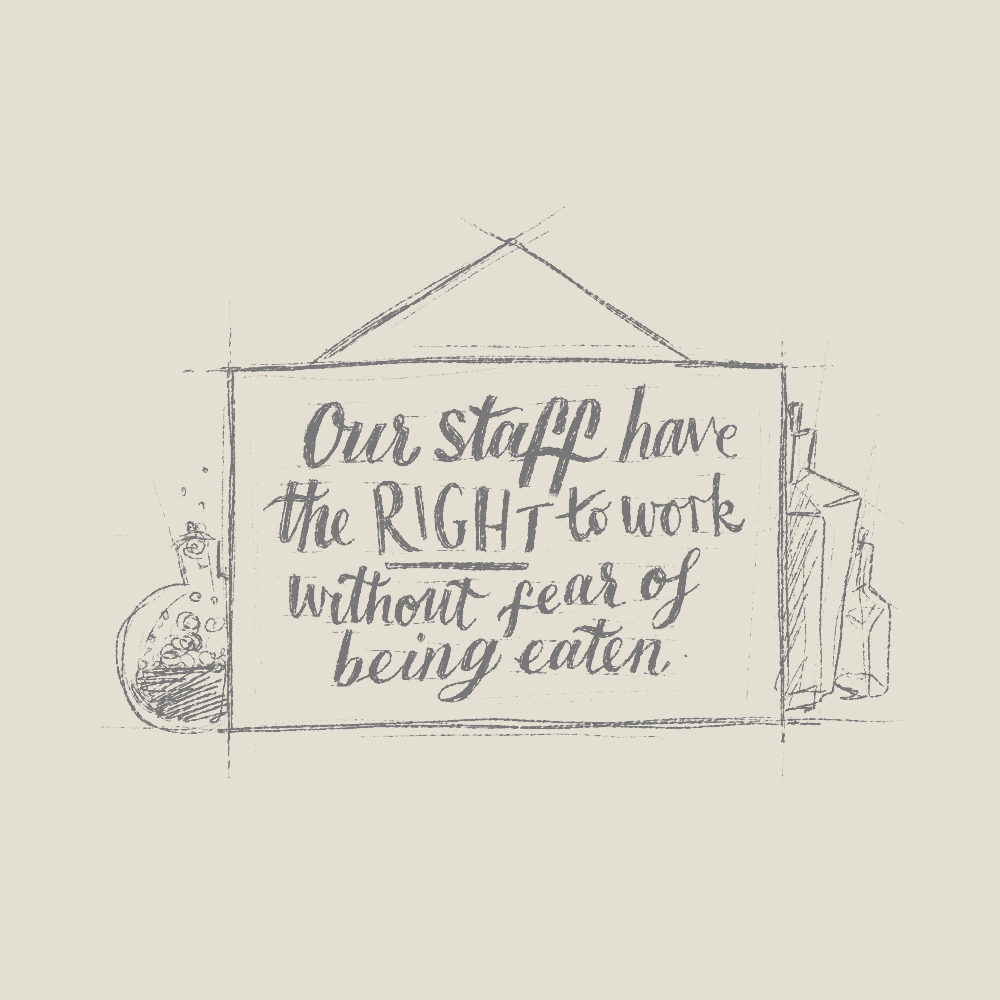 Our staff have
the RIGHT to work
without fear of
being eaten.